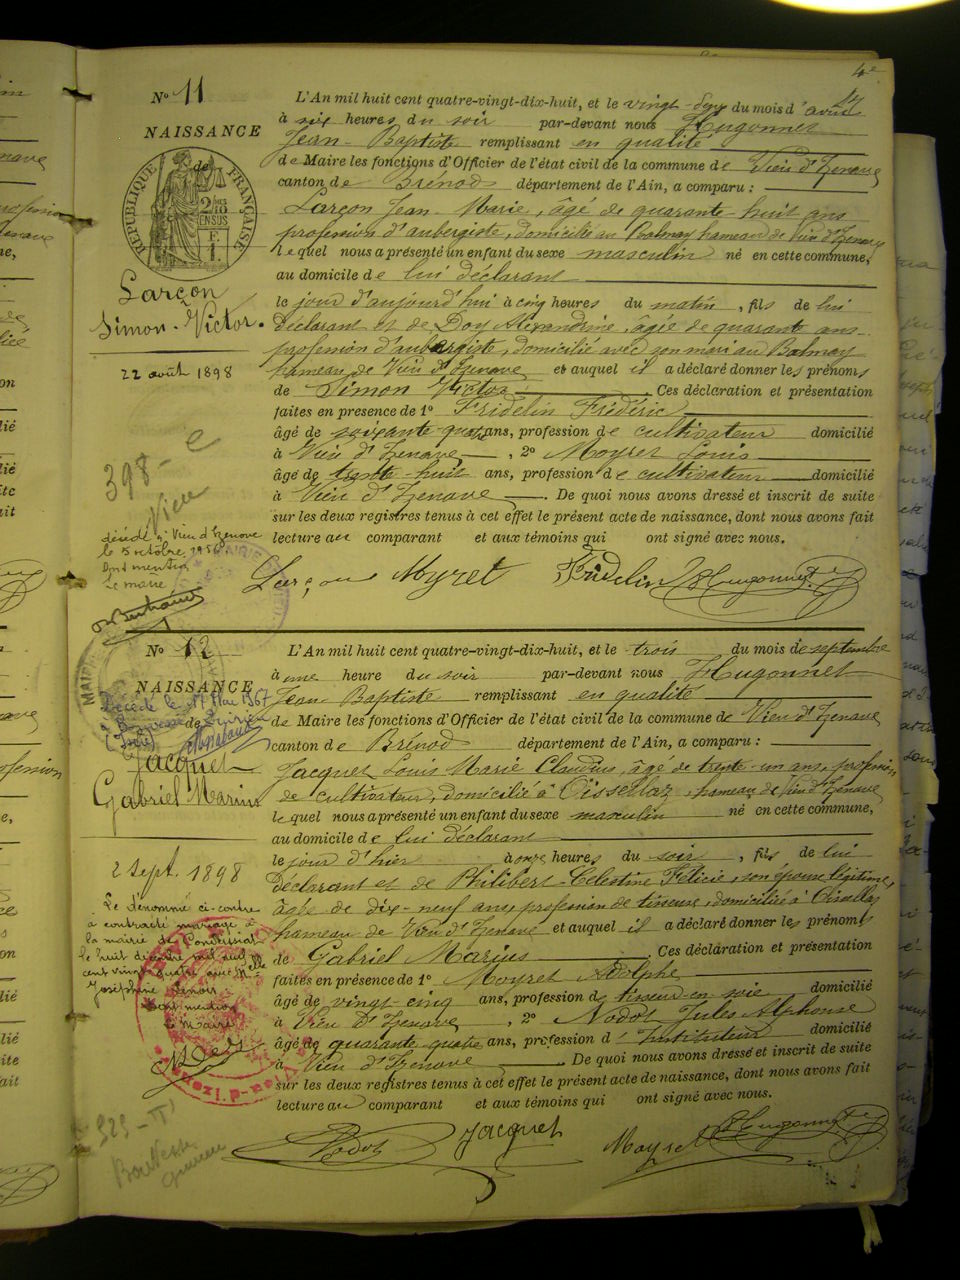 4e
No 11
NAISSANCE
de
RÉPUBLIQUE FRANÇAISE
2/10 EN SUS
F. 1.
Larçon
Simon-Victor.
22 août 1898
398 - e
Vieu
décédé à Vieu d'Izenave
le 5 octobre 1956
Dont mention
Le maire
L'An mil huit cent quatre-vingt-dix-huit, et le vingt-deux du mois d'août
à six heures du soir par-devant nous Hugonnet
Jean-Baptiste remplissant en qualité
de Maire les fonctions d'Officier de l'état civil de la commune de Vieu d'Izenave
canton de Brénod département de l'Ain, a comparu :
Larçon Jean-Marie, âgé de quarante-huit ans
profession d'aubergiste, domicilié au Balmay hameau de Vieu d'Izenave
lequel nous a présenté un enfant du sexe masculin né en cette commune,
au domicile de lui déclarant
le jour d'aujourd'hui à cinq heures du matin, fils de lui
déclarant et de Doy Alexandrine, âgée de quarante ans
profession d'aubergiste, domicilié avec son mari au Balmay
hameau de Vieu d'Izenave et auquel il a déclaré donner les prénoms
de Simon Victor Ces déclaration et présentation
faites en présence de 1° Fridelin Frédéric
âgé de soixante-quatre ans, profession de cultivateur domicilié
à Vieu d'Izenave, 2° Moyret Louis
âgé de trente-huit ans, profession de cultivateur domicilié
à Vieu d'Izenave. De quoi nous avons dressé et inscrit de suite
sur les deux registres tenus à cet effet le présent acte de naissance, dont nous avons fait
lecture au comparant et aux témoins qui ont signé avec nous.
Larçon Myret Fridelin Hugonnet
No 12
NAISSANCE
de
Décédé le 17 Mai 1967
Jacquet
Gabriel Marius
2 Sept. 1898
Le dénommé ci-contre
a contracté mariage à
la mairie de
le huit décembre mil neuf
cent vingt quatre avec Melle
Joséphine
Dont mention
Le Maire
L'An mil huit cent quatre-vingt-dix-huit, et le trois du mois de septembre
à une heure du soir par-devant nous Hugonnet
Jean Baptiste remplissant en qualité
de Maire les fonctions d'Officier de l'état civil de la commune de Vieu d'Izenave
canton de Brénod département de l'Ain, a comparu :
Jacquet Louis Marie Claudius, âgé de trente-un ans, profession
de cultivateur, domicilié à Oisselaz, hameau de Vieu d'Izenave
lequel nous a présenté un enfant du sexe masculin né en cette commune,
au domicile de lui déclarant
le jour d'hier à onze heures du soir, fils de lui
déclarant et de Philibert-Célestine Félicie, son épouse légitime,
âgée de dix-neuf ans, profession de tisseuse, domiciliée à Oisselaz
hameau de Vieu d'Izenave et auquel il a déclaré donner les prénoms
de Gabriel Marius Ces déclaration et présentation
faites en présence de 1° Moyret Adolphe
âgé de vingt-cinq ans, profession de tisseur en soie domicilié
à Vieu d'Izenave, 2° Nodot Jules Alphonse
âgé de quarante-quatre ans, profession d'Instituteur domicilié
à Vieu d'Izenave. De quoi nous avons dressé et inscrit de suite
sur les deux registres tenus à cet effet le présent acte de naissance, dont nous avons fait
lecture au comparant et aux témoins qui ont signé avec nous.
Nodot Jacquet Moyret Hugonnet